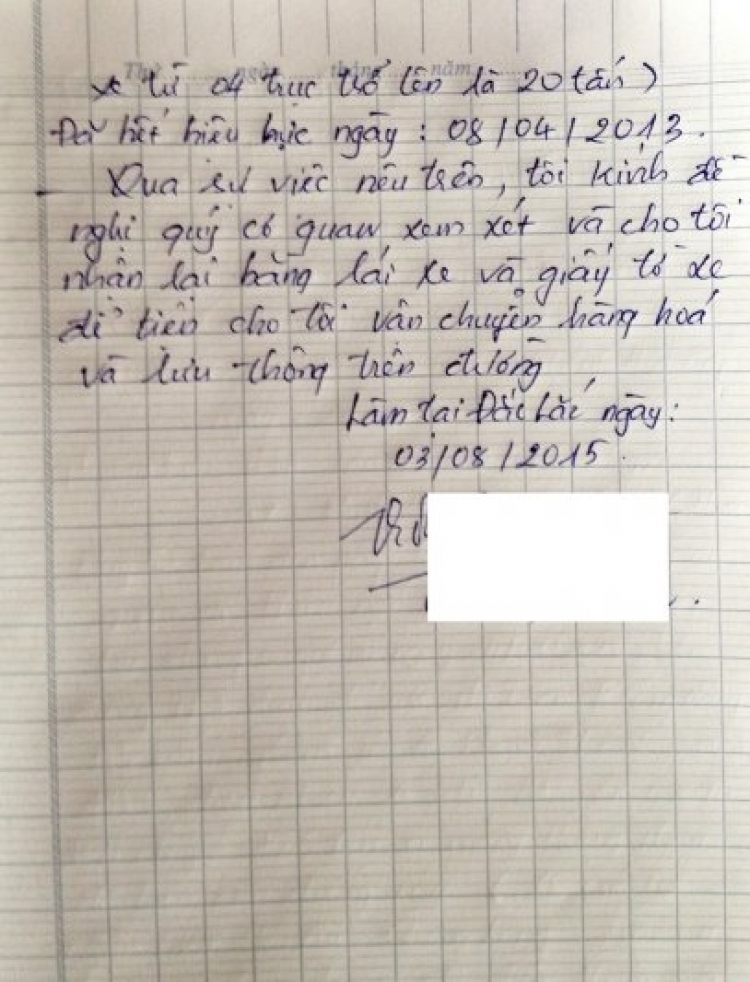 Thứ ngày tháng năm
xe từ 04 trục trở lên là 20 tấn)
Đã hết hiệu lực ngày: 08/04/2013.
- Qua sự việc nêu trên, tôi kính đề
nghị quý cơ quan xem xét và cho tôi
nhận lại bằng lái xe và giấy tờ xe
để tiện cho tôi vận chuyển hàng hoá
và lưu thông trên đường
Làm tại Đắc Lắc ngày:
03/08/2015.